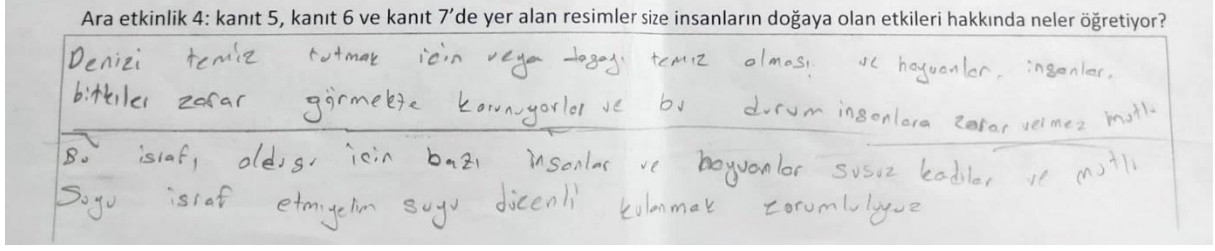 Ara etkinlik 4: kanıt 5, kanıt 6 ve kanıt 7’de yer alan resimler size insanların doğaya olan etkileri hakkında neler öğretiyor?
Denizi temiz tutmak için veya doğayı temiz olması ve hayvanlar, insanlar,
bitkiler zarar görmekte korunuyorlar ve bu durum insanlara zarar vermez mutlu
Su israfı olduğu için bazı insanlar ve hayvanlar susuz kadılar ve mutli
Suyu israf etmiyelim suyu düzenli kulanmak zorumluluyuz